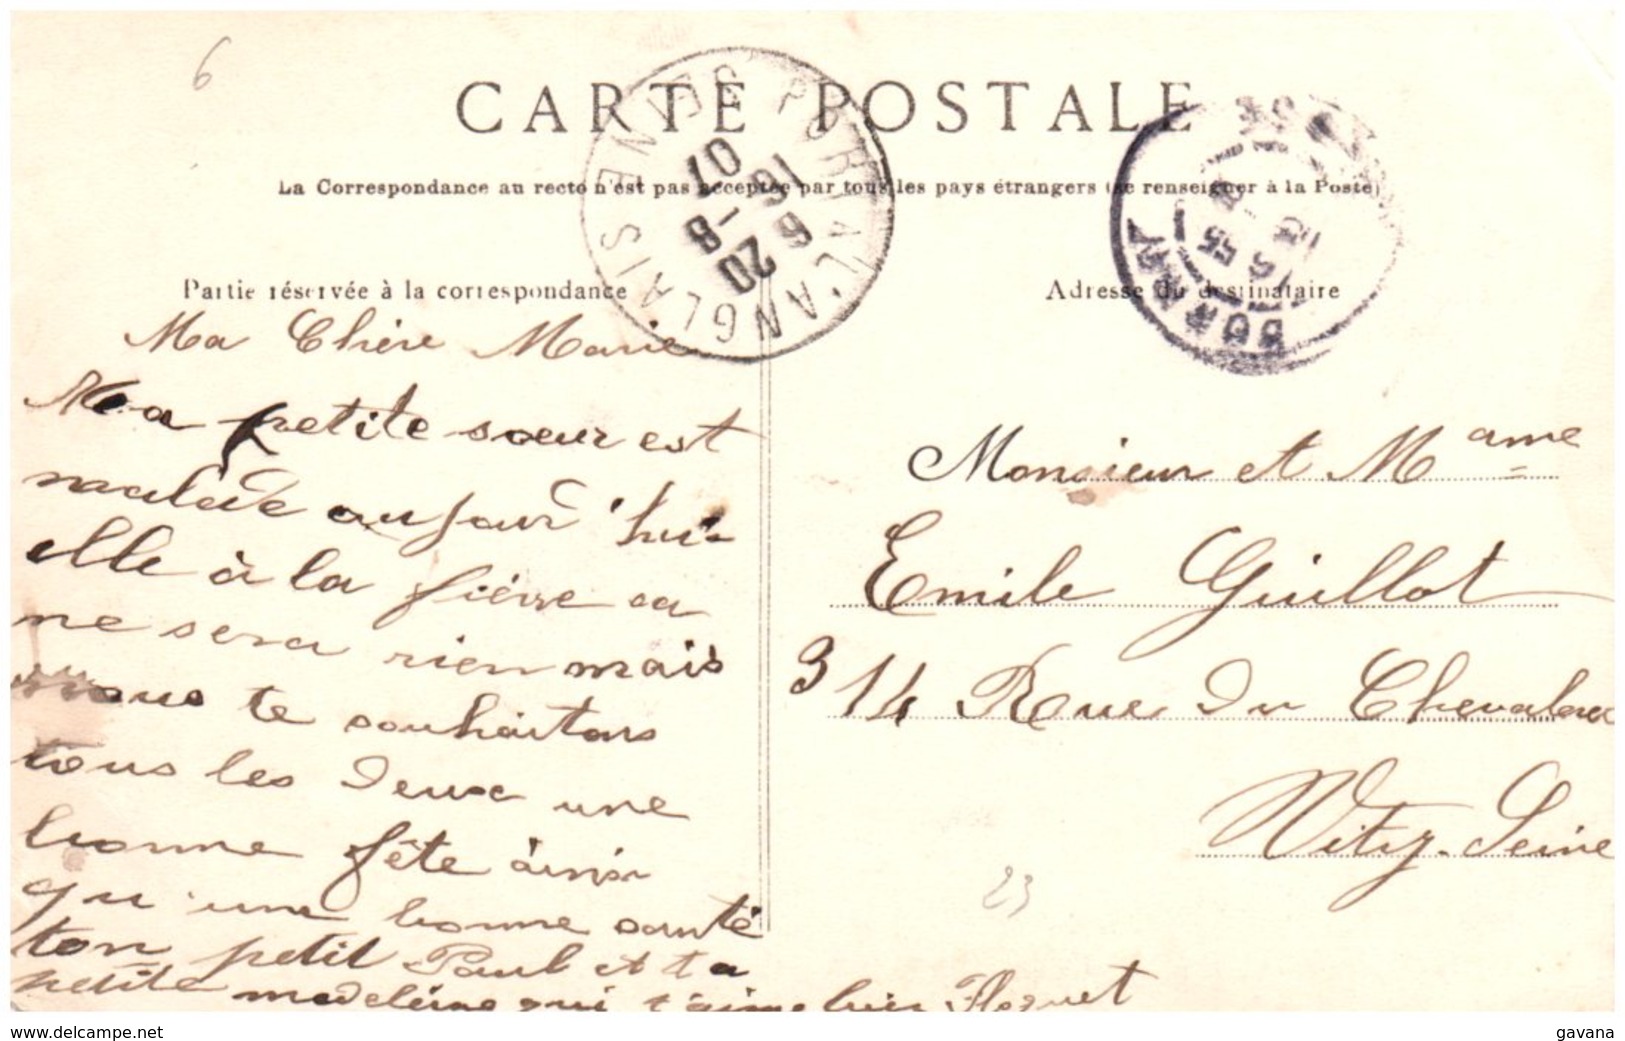 6
CARTE POSTALE
La Correspondance au recto n'est pas acceptée par tous les pays étrangers (se renseigner à la Poste)
PORT A L'ANGLAIS SEINE
6 20
16 -8
07
Partie réservée à la correspondance
Adresse du destinataire
Ma Chère Marie
Ma petite sœur est
malade aujour'hui
elle à la fièvre ca
ne sera rien mais
nous te souhaitons
tous les deux une
bonne fête ainsi
qu'une bonne santé
ton petit Paul et ta
petite madeleine qui t'aime bien
Monsieur et Mame
Emile Guillot
314 Rue du Chevaleret
Vitry-Seine
23
www.delcampe.net
gavana